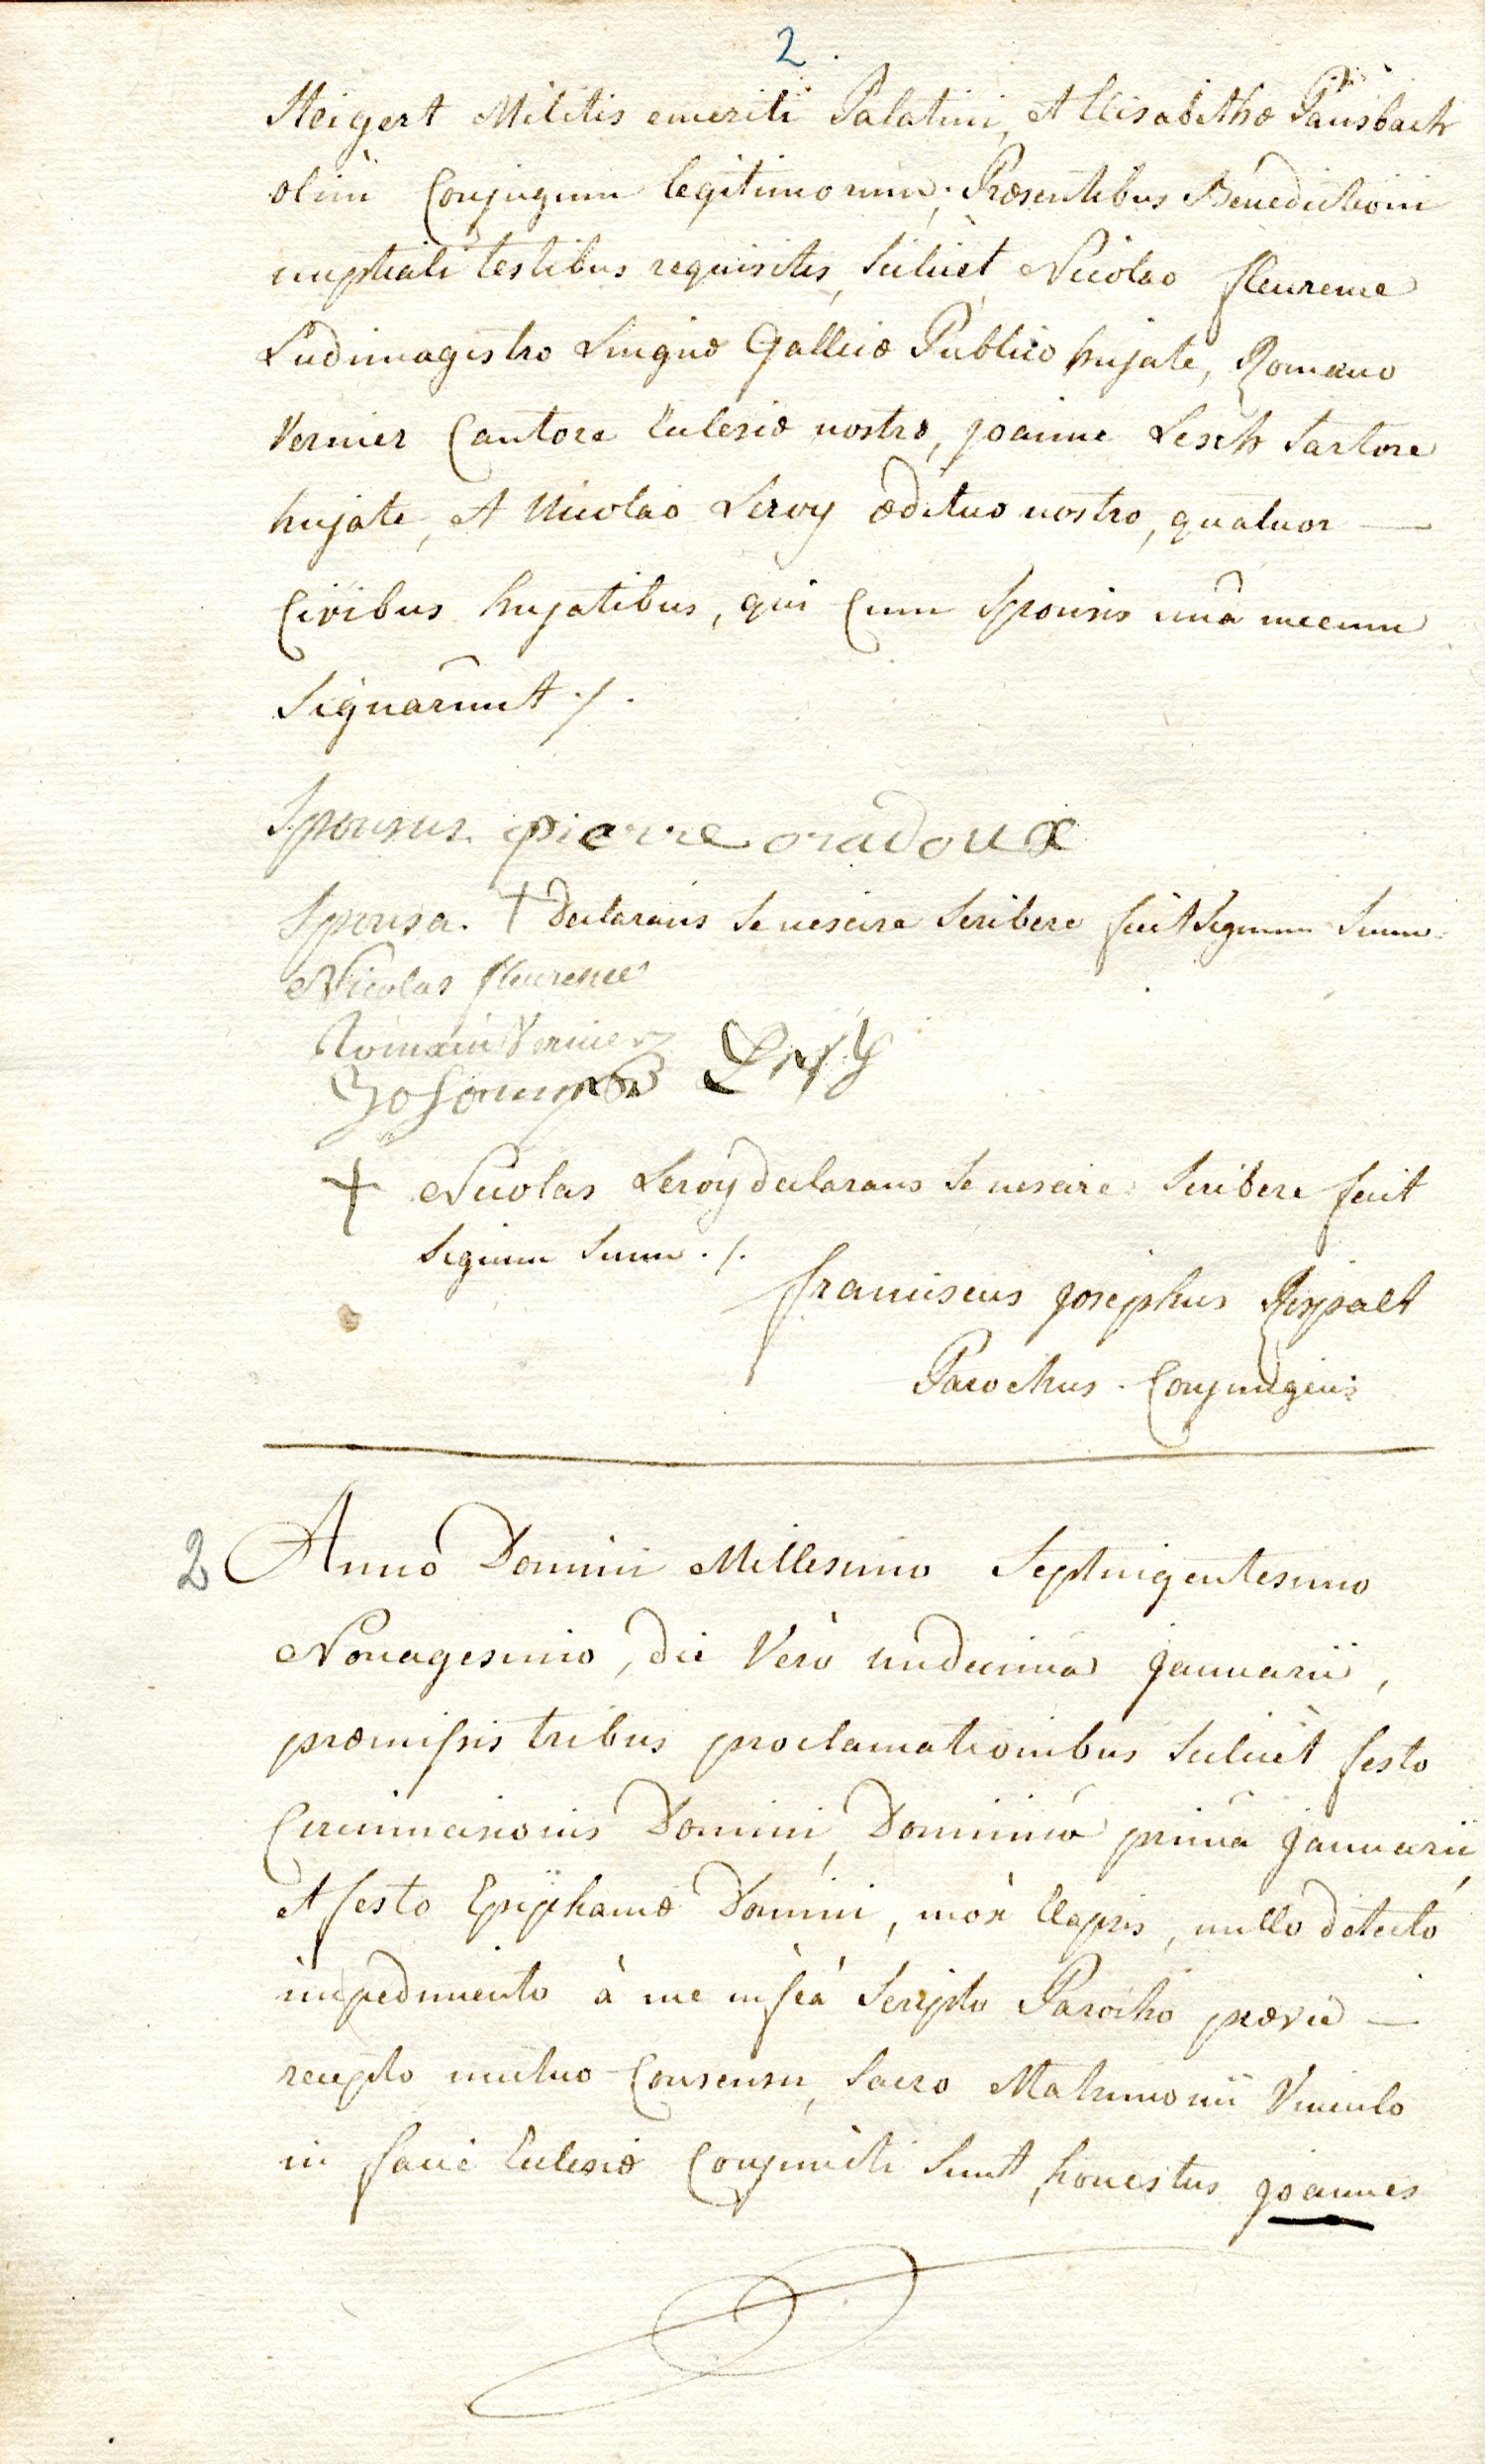 2.
Steigert Militis emeriti Palatini, et Elisabethæ Pausbach
olim Conjugum legitimorum; Præsentibus Benedictioni
nuptiali testibus requisitis, Scilicet Nicolao fleurence
Ludimagistro Linguæ Gallicæ Publico hujate, Romano
Vernier Cantore Ecclesiæ nostræ, Joanne Lesch Sartore
hujate, et Nicolao Leroy ædituo nostro, quatuor —
Civibus hujatibus, qui Cum Sponsis unà mecum
Signarunt ./.
Sponsus. pierre oradoux
Sponsa. + Declarans Se nescire Scribere fecit Signum Suum.
Nicolas fleurence
Romain Vernier
+ Nicolas Leroy declarans Se nescire Scribere fecit
Signum Suum ./.
franciscus Josephus Rispalt
Parochus Conjungens
2 Anno Domini Millesimo Septingentesimo
Nonagesimo, die Verò undecima Januarii,
præmissis tribus proclamationibus Scilicet festo
Circumcisionis Domini, Dominicâ primâ Januarii,
et festo Epiphaniæ Domini, mox Elapsis, nullo detecto
impedimento à me infrà Scripto Parocho prævie —
recepto mutuo Consensu, Sacro Matrimonii Vinculo
in facie Ecclesiæ Conjuncti Sunt, honestus Joannes